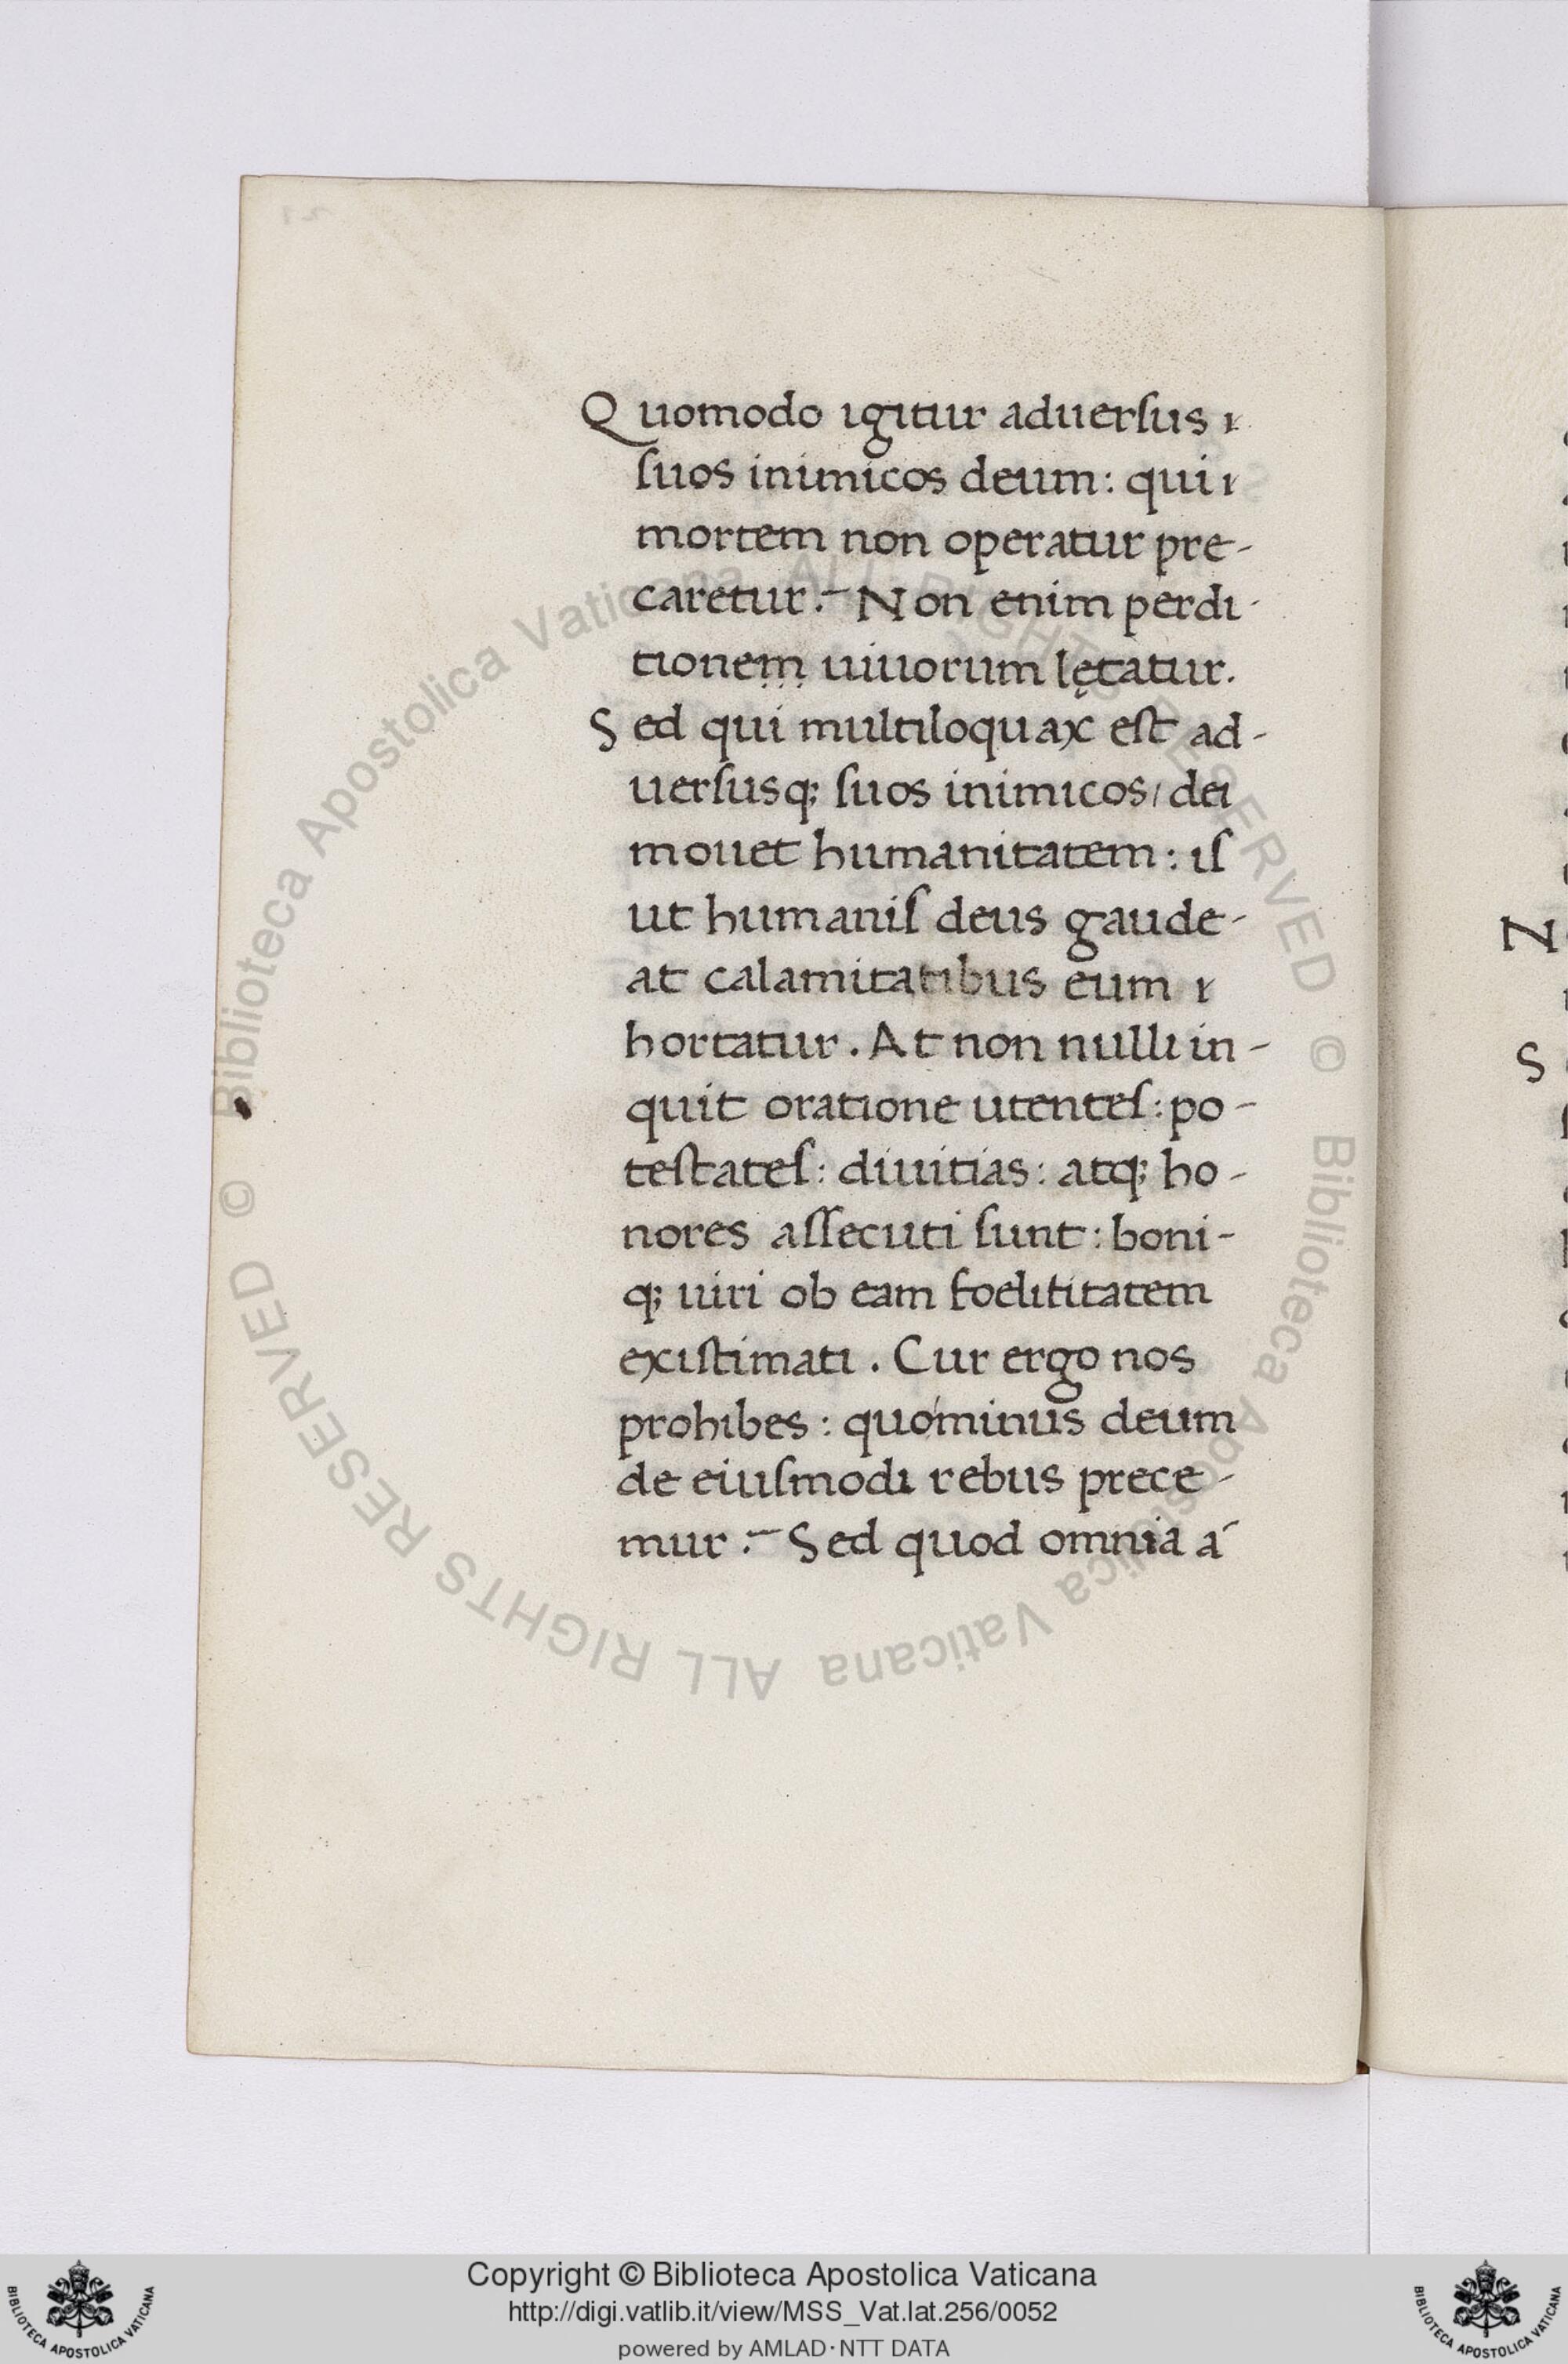 Quomodo igitur aduersus
suos inimicos deum: qui
mortem non operatur pre-
caretur:~ Non enim perdi-
tionem uiuorum lętatur.
Sed qui multiloquax est ad-
uersusq; suos inimicos/ dei
mouet humanitatem: is
ut humanis deus gaude-
at calamitatibus eum
hortatur. At non nulli in-
quit oratione utentes: po-
testates: diuitias: atq; ho-
nores assecuti sunt: boni-
q; uiri ob eam foelititatem
existimati. Cur ergo nos
prohibes: quóminus deum
de eiusmodi rebus prece-
mur:~ Sed quod omnia á
N
S
© Biblioteca Apostolica Vaticana ALL RIGHTS RESERVED © Biblioteca Apostolica Vaticana ALL RIGHTS RESERVED
Copyright © Biblioteca Apostolica Vaticana
http://digi.vatlib.it/view/MSS_Vat.lat.256/0052
powered by AMLAD·NTT DATA
BIBLIOTECA APOSTOLICA VATICANA
BIBLIOTECA APOSTOLICA VATICANA